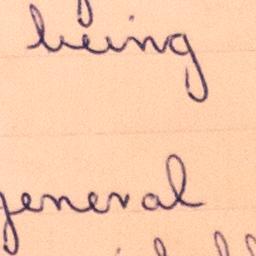 being
general